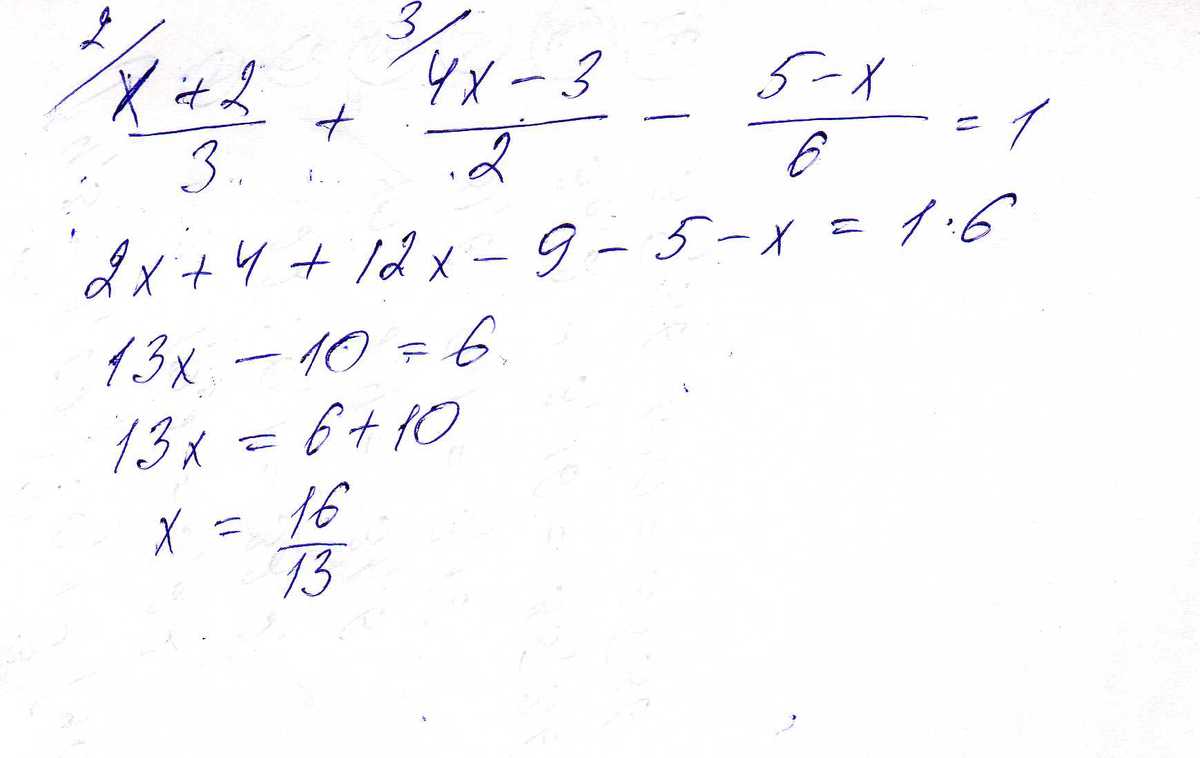 2/ 3/
x + 2 / 3 + 4x − 3 / 2 − 5 − x / 6 = 1
2x + 4 + 12x − 9 − 5 − x = 1·6
13x − 10 = 6
13x = 6 + 10
x = 16 / 13